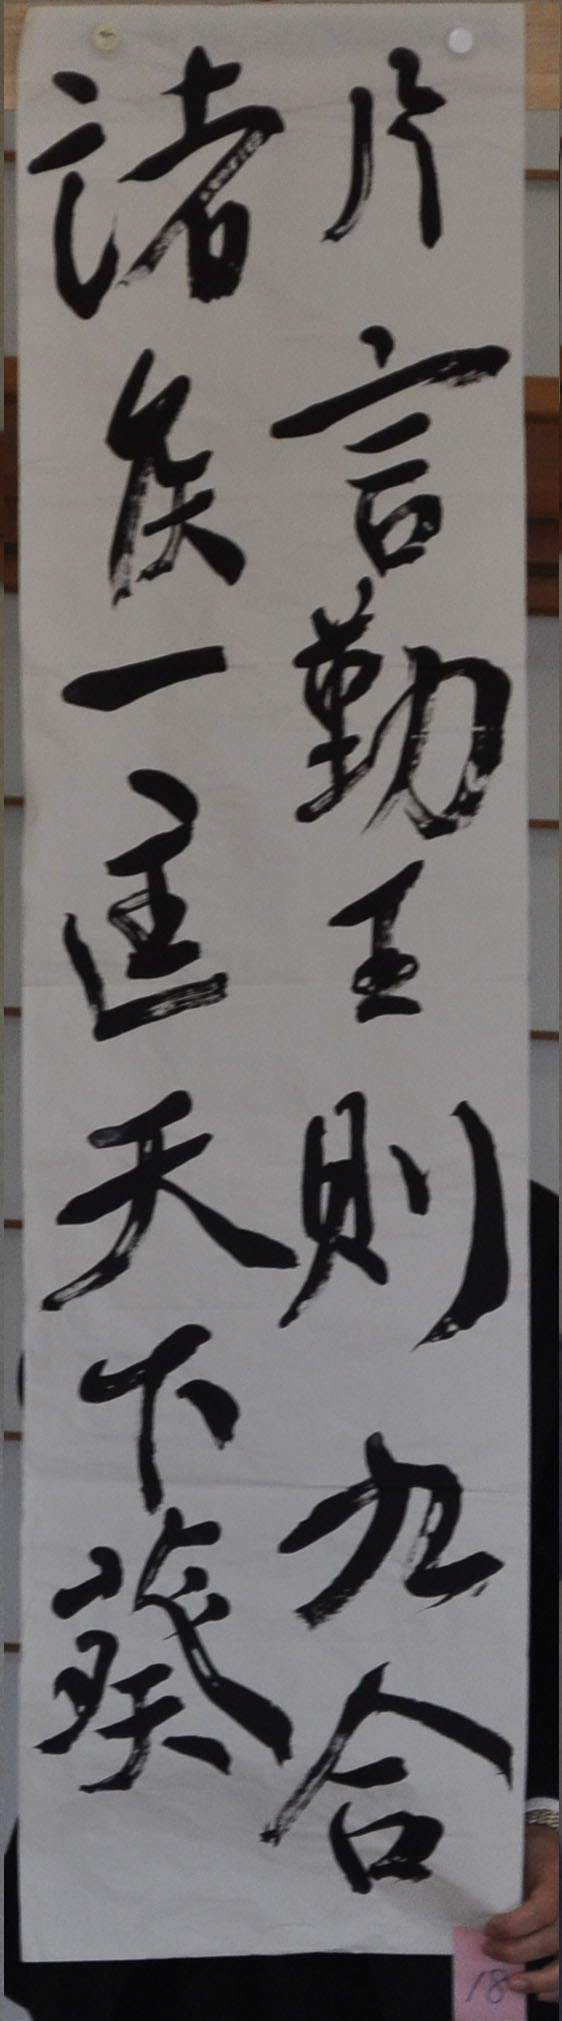 片言勤王則九合
諸侯一匡天下葵
18